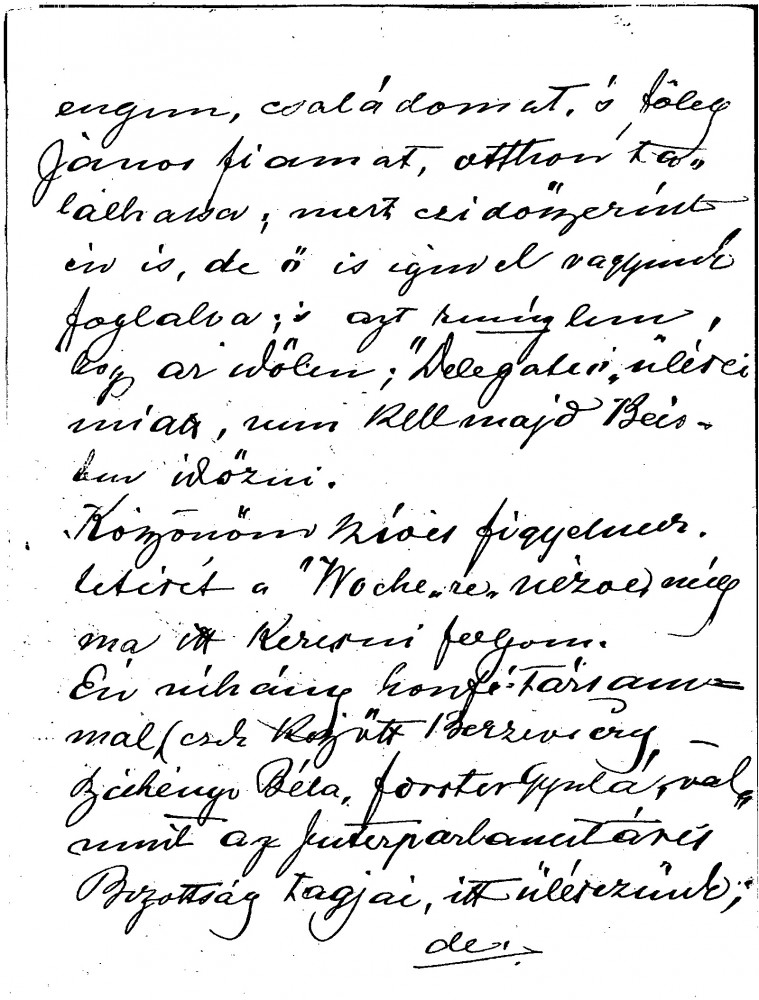 engem, családomat, s főleg
János fiamat, otthon ta„
lálhassa; mert ez idő szerint
én is, de ő is igen el vagyunk
foglalva; s azt remélem,
hogy az időben; "Delegatió„ ülései
miatt, nem kell majd Bécs-
ben időzni.
Köszönöm szíves figyelmez-
tetését a "Woche„-re„ nézve, még
ma itt keresni fogom.
Én néhány honfi-társam=
mal, (ezek között Berzeviczy,
Széchényi Béla, forster Gyula, val„
mint az Interparlamentáris
Bizottság tagjai, itt ülésezünk;
de..